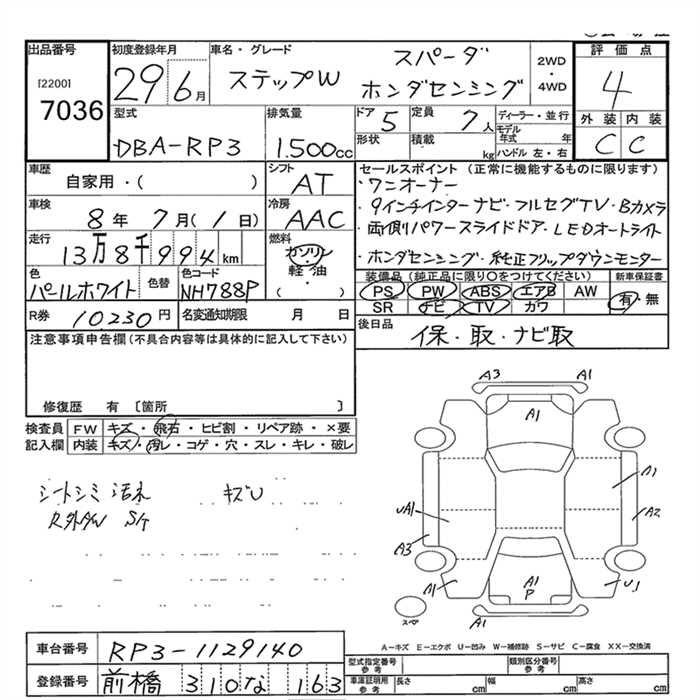 出品番号 初度登録年月 車名・グレード スパーダ 評価点
[2200] 29 6月 ステップW ホンダセンシング 2WD・4WD 4
7036
型式 排気量 ドア 5 定員 7人 ディーラー・並行 外装 内装
DBA-RP3 1.500cc 形状 積載 kg モデル年式 年 C C
ハンドル 左・右
車歴 自家用・( ) シフト AT セールスポイント (正常に機能するものに限ります)
・ワンオーナー
車検 8年7月(1日) 冷房 AAC ・9インチインターナビ・フルセグTV・Bカメラ
・両側パワースライドドア・LEDオートライト
走行 13万8千994km 燃料 ガソリン ・ホンダセンシング・純正フリップダウンモニター
軽・油
( )
色 パールホワイト 色替 色コード NH788P 装備品(純正品に限り○をつけてください) 新車保証書
PS PW ABS エアB AW 有・無
SR ナビ TV カワ
R券 10230円 名変通知期限 月 日 後日品 保・取・ナビ取
注意事項申告欄(不具合内容等は具体的に記入して下さい)
修復歴 有 [箇所 ]
検査員 FW キズ・飛石・ヒビ割・リペア跡・×要
記入欄 内装 キズ・汚レ・コゲ・穴・スレ・キレ・破レ
シートシミ キズU
A3 A1
A1
A1
A2
A3
A1 A1 P U1
スペア
A-キズ E-エクボ U-凹み W-補修跡 S-サビ C-腐食 XX-交換済
車台番号 RP3-1129140 型式指定番号 参考 類別区分番号 参考
登録番号 前橋 310 な 163 車庫証明用 参考 長さ cm 幅 cm 高さ cm